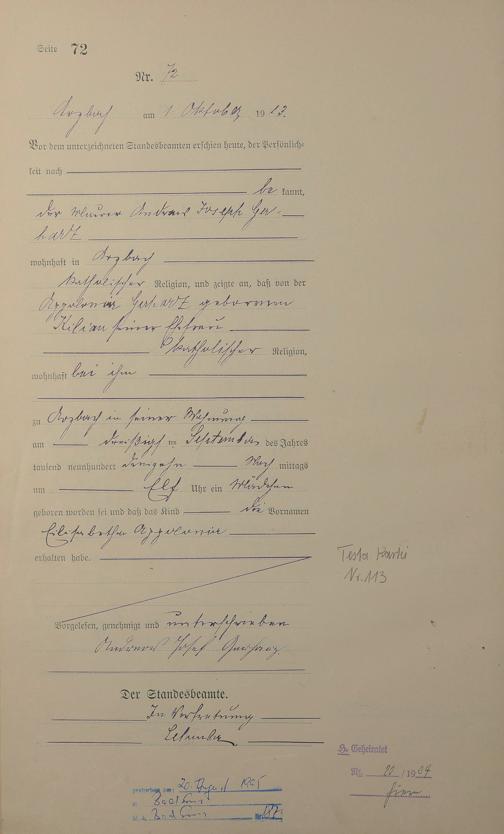 Seite 72
Nr. 72
Arzbach am 1 Oktober 1913.
Vor dem unterzeichneten Standesbeamten erschien heute, der Persönlich-
keit nach
be kannt,
der Maurer Andreas Joseph Ger-
hardt
wohnhaft in Arzbach
katholischer Religion, und zeigte an, daß von der
Appolonia Gerhardt geborenen
Kilian seiner Ehefrau
katholischer Religion,
wohnhaft bei ihm
zu Arzbach in seiner Wohnung
am dreißigsten September des Jahres
tausend neunhundert dreizehn Nach mittags
um Elf Uhr ein Mädchen
geboren worden sei und daß das Kind die Vornamen
Elisabetha Appolonia
erhalten habe.
Vorgelesen, genehmigt und unterschrieben
Andreas Josef
Der Standesbeamte.
In Vertretung
Nr. 113
Geheiratet
Nr. 20/1934
hier
gestorben am: 20. 1985
Bad Ems
Bad Ems